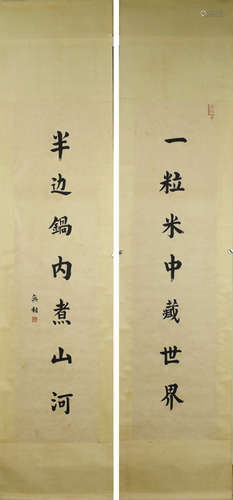 一粒米中藏世界
半边鍋内煮山河